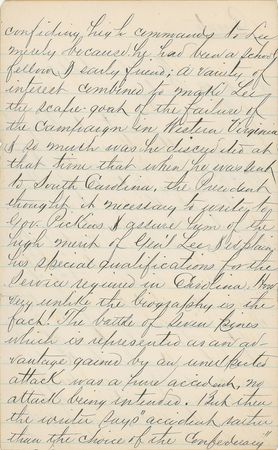 confiding high commands to Lee
merely because he had been a school
fellow & early friend; a variety of
interest combined to make Lee
the scape goat of the failure of
the Campaign in Western Virginia
& so much was he discredited at
that time that when he was sent
to South Carolina, the President
thought it necessary to write to
Gov. Pickens & assure him of the
high merit of Genl Lee & explain
his special qualifications for the
Service required in Carolina. How
very unlike the biography is the
fact! The battle of Seven Pines
which is represented as an ad-
vantage gained by an unexpected
attack was a pure accident, no
attack being intended. But then
the writer says "accident rather
than the choice of the Confederacy